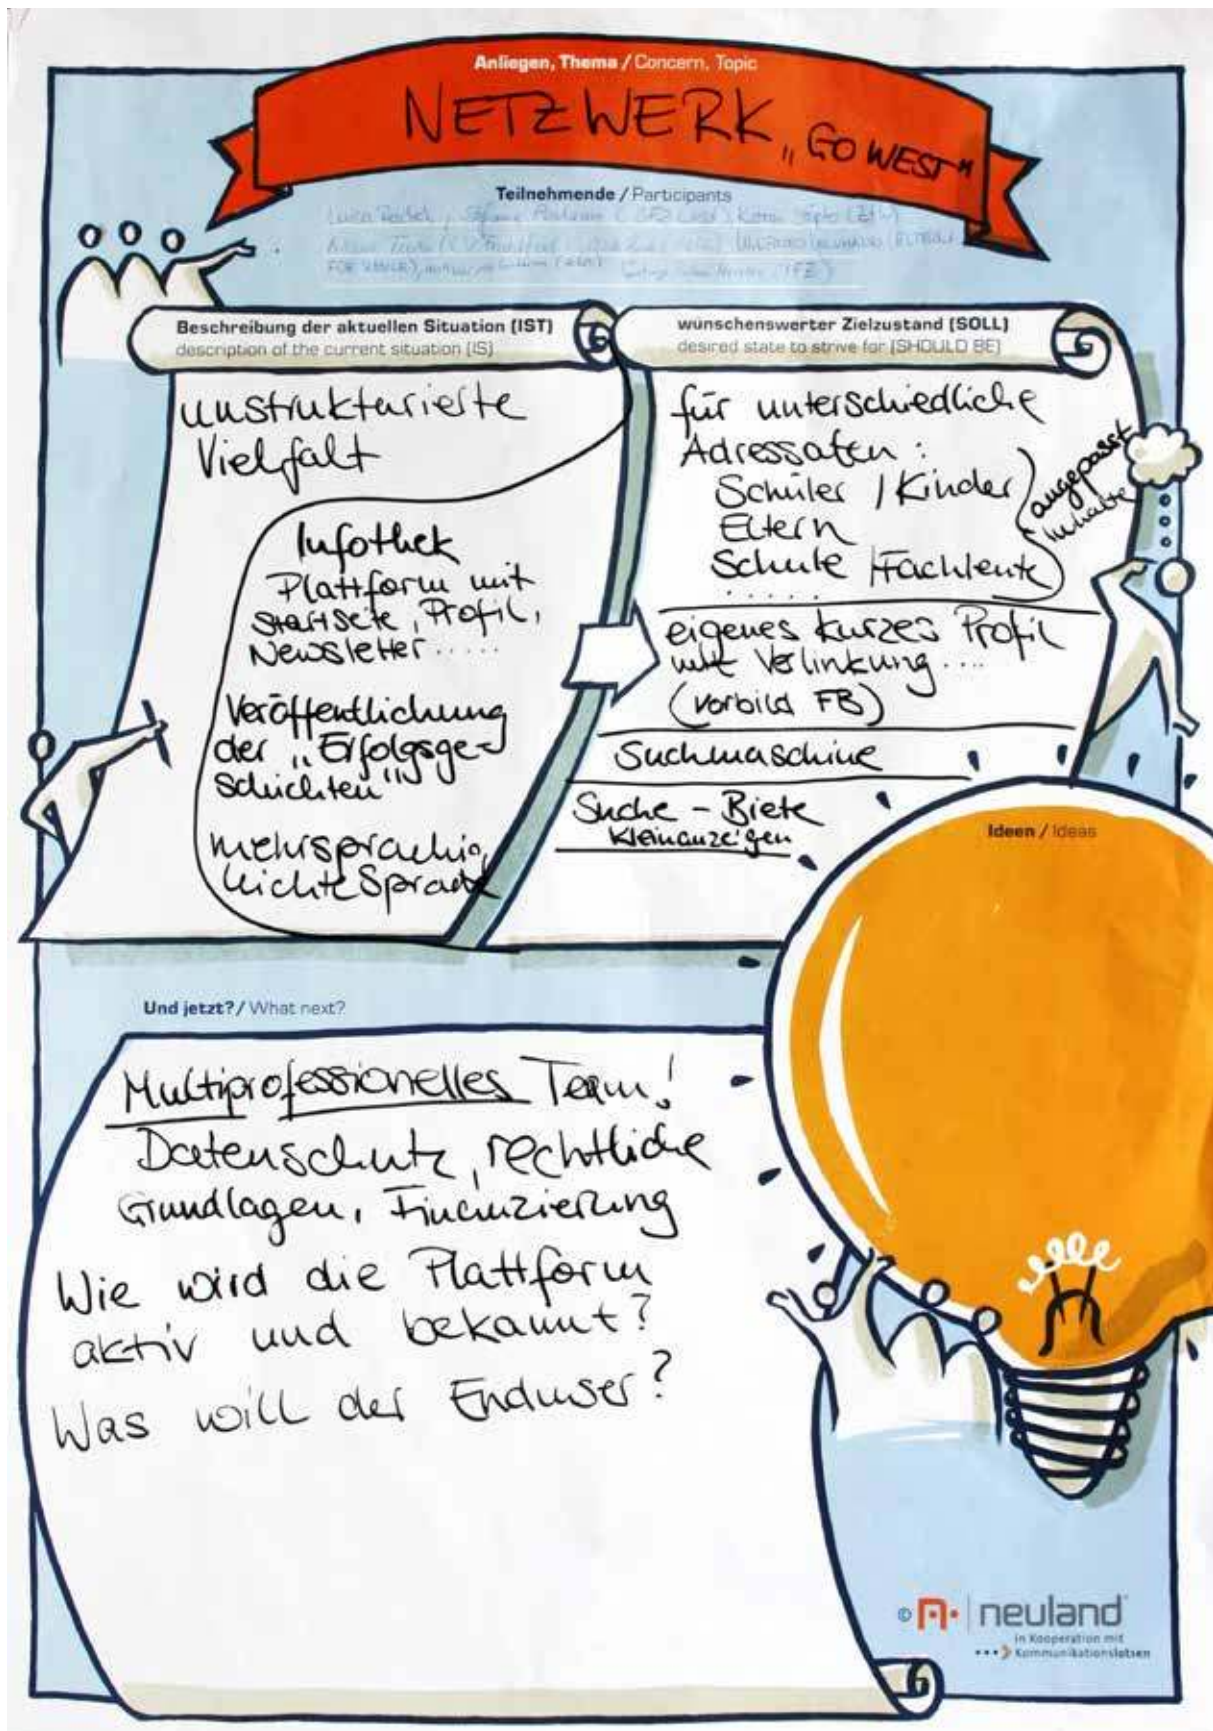 Anliegen, Thema / Concern, Topic
NETZWERK „GO WEST"
Teilnehmende / Participants
Beschreibung der aktuellen Situation (IST)
description of the current situation (IS)
unstrukturierte
Vielfalt
Infothek
Plattform mit
Startseite, Profil,
Newsletter.....
Veröffentlichung
der „Erfolgsge-
schichten"
mehrsprachig
leichte Sprache
wünschenswerter Zielzustand (SOLL)
desired state to strive for (SHOULD BE)
für unterschiedliche
Adressaten:
Schüler / Kinder
Eltern
Schule / Fachleute
.....
angepasst
Inhalte
eigenes kurzes Profil
mit Verlinkung....
(Vorbild FB)
Suchmaschine
Suche - Biete
Kleinanzeigen
Ideen / Ideas
Und jetzt? / What next?
Multiprofessionelles Team!
Datenschutz, rechtliche
Grundlagen, Finanzierung
Wie wird die Plattform
aktiv und bekannt?
Was will der Enduser?
© neuland
in Kooperation mit
Kommunikationslotsen